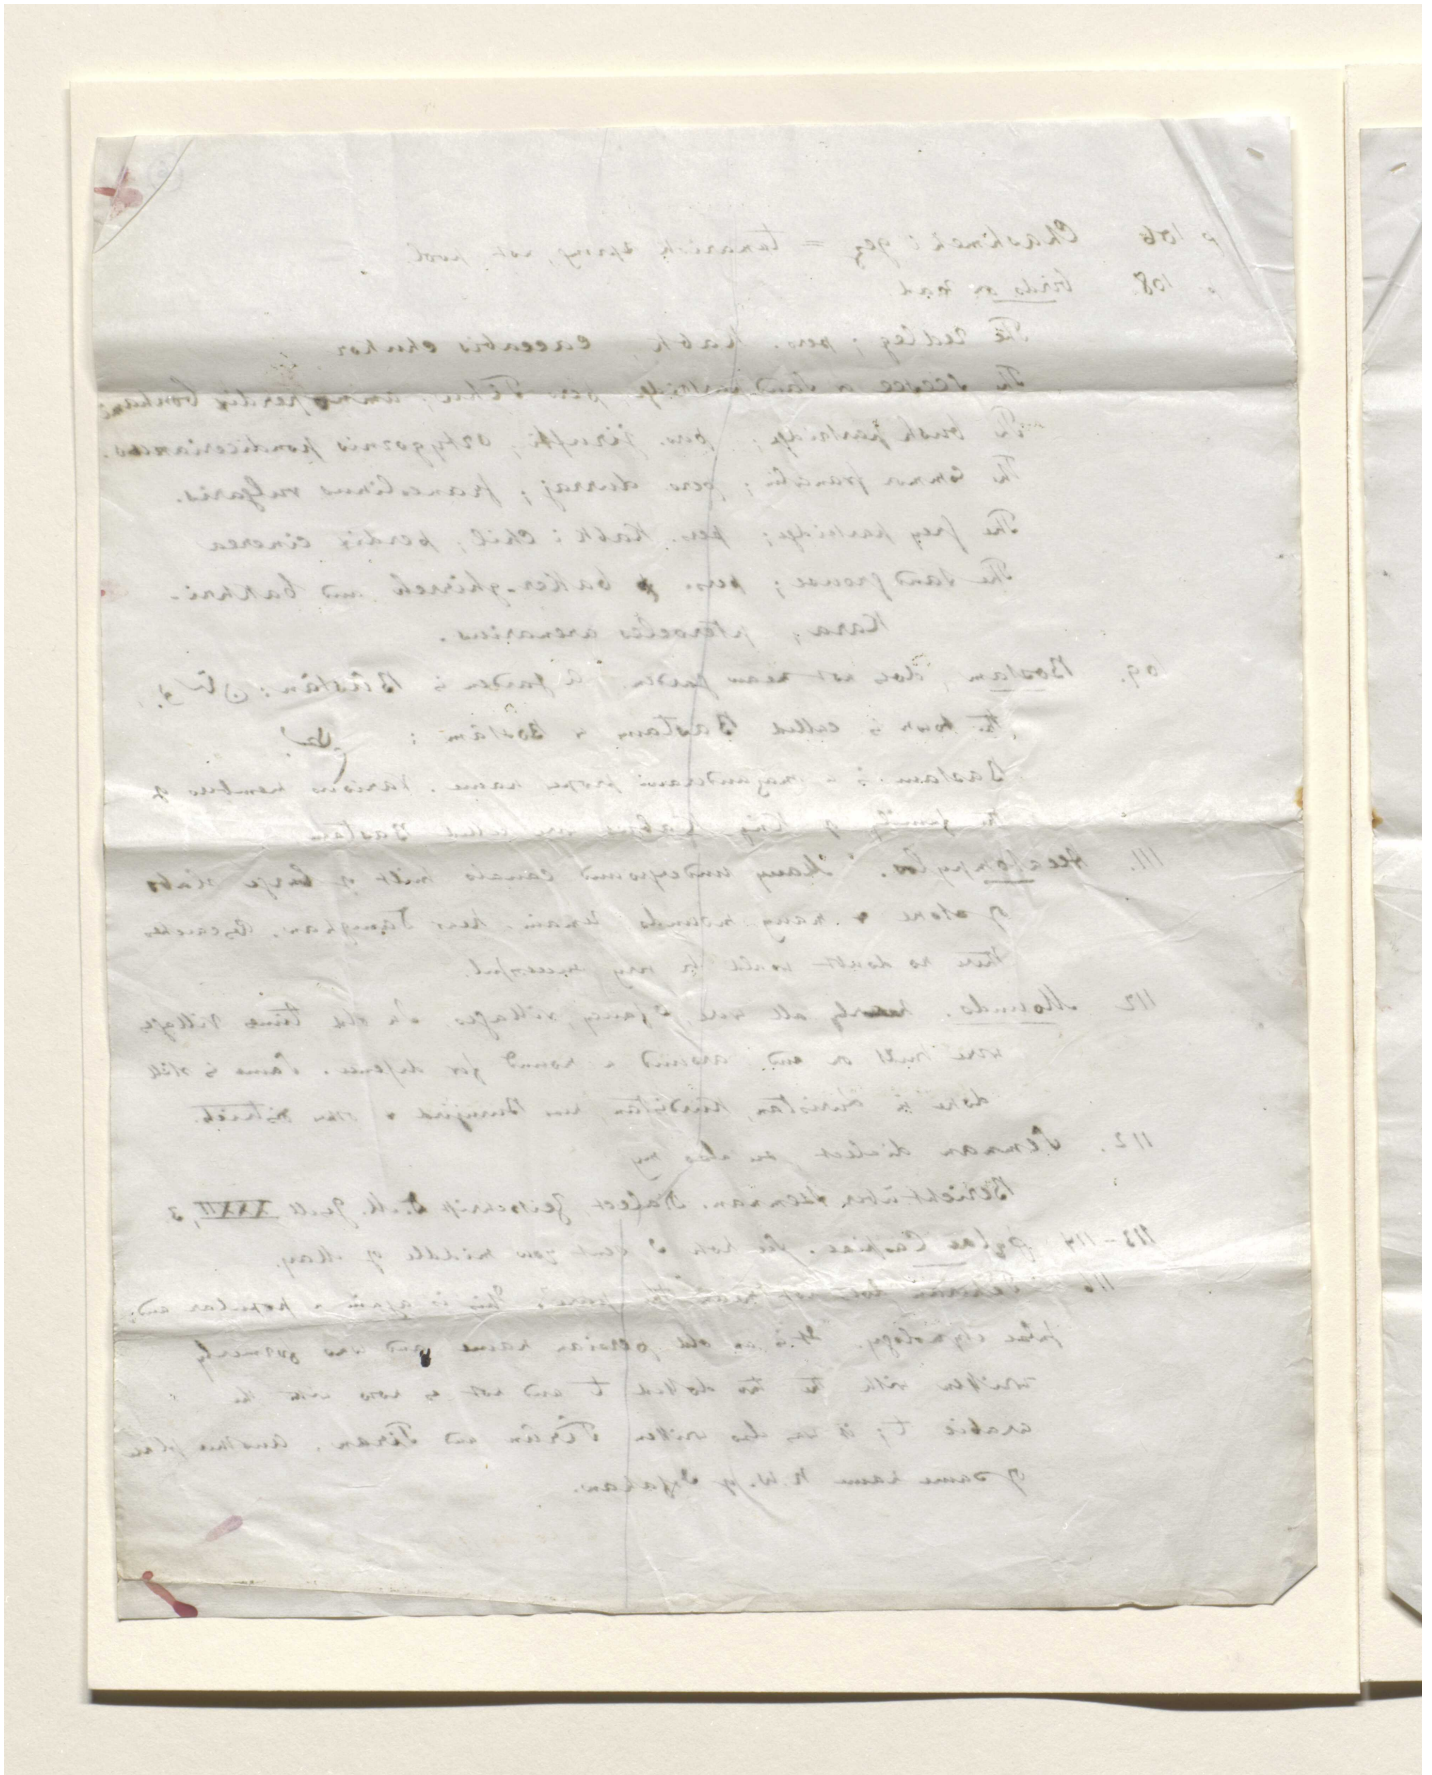 p 106 Chashmeh i gez = tamarisk spring, not pool
p. 108. birds on road
The redleg; pers. Kabk, caccabis chukor
The seesee or sand partridge; pers Tehu; ammoperdix bonhami
The bush partridge; pers. jirufti; ortygornis pondicerianus.
The common francolin; pers. durraj; francolinus vulgaris.
The grey partridge; pers. Kabk i chil; perdix cinerea
The sand grouse; pers. baker-ghirreh and bakhri-
Kara; pterocles arenarius.
109. Bostam, does not mean garden. A garden is Bûstân:
the town is called Bastam or Bostâm:
Bastam is a proper name. Various members of
the family of King are called Bastam
111. Hecatompylos. Many underground canals built of large slabs
of stone & many mounds remain near Damghan. Researches
there no doubt would be very successful.
112 Mounds. nearly all were villages. In old times villages
were built on and around a mound for defence. Same is still
done in Luristan, Kurdistan, near Burujird & other districts.
112. Semnan dialect see also my
Bericht über Semnan. Dialect Zeitschrift D. M. Gesell XXXII, 3
113-114 Pylae Caspiae. See note I sent you middle of May.
116 Teheran does not mean the pure. This is again a popular and
false etymology. It is an old persian name and was formerly
written with the two dotted t and not as now with the
arabic t; it was also written Tirân and Tiran. Another place
of same name N.W. of Isfahan.